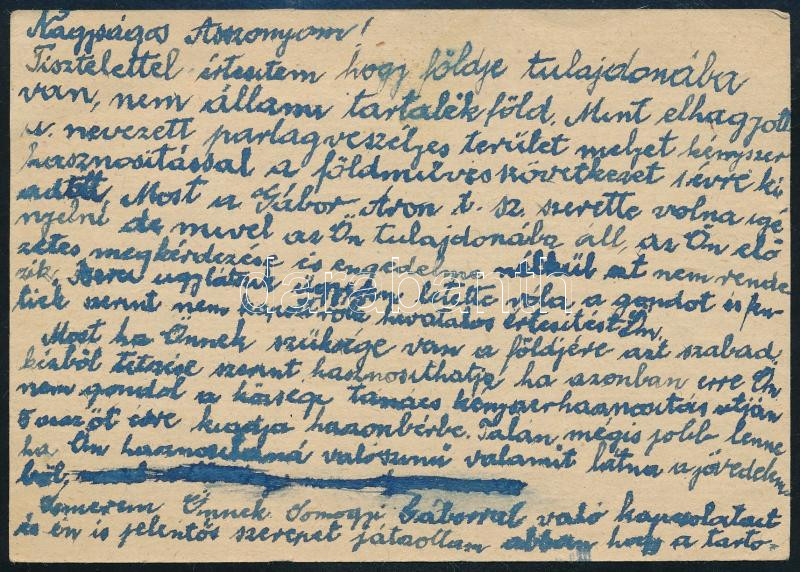 Nagyságos Asszonyom!
Tisztelettel értesitem hogy földje tulajdonába
van, nem állami tartalék föld. Mint elhagyott
u. nevezett parlagveszélyes terület melyet kényszer
hasznositással a földmüvesszövetkezet 1 évre ki
adott. Most a Gábor Áron t. sz. szerette volna igé
nyelni de mivel az Ön tulajdonába áll, az Ön elő
zetes megkérdezése és engedelme nélkül ezt nem rende
zik. ugylátszik letelte vola a gondot és fen
tiek szerint nem hivatalos értesitést Ön.
Most ha Önnek szüksége van a földjére azt szabad
kézből tetzése szerint hasznosithatja ha azonban erre Ön
nem gondol a községi tanács kényszerhasznositás utján
5 azaz öt évre kiadja haszonbérbe. Talán mégis jobb lenne
ha Ön hasznositaná valószinü valamit látna a jövedelm-
ből,
Ismerem Önnek Somogyi Gáborral való kapcsolatait
és én is jelentős szerepet játzottam abban hogy a tarto-
darabanth
.com